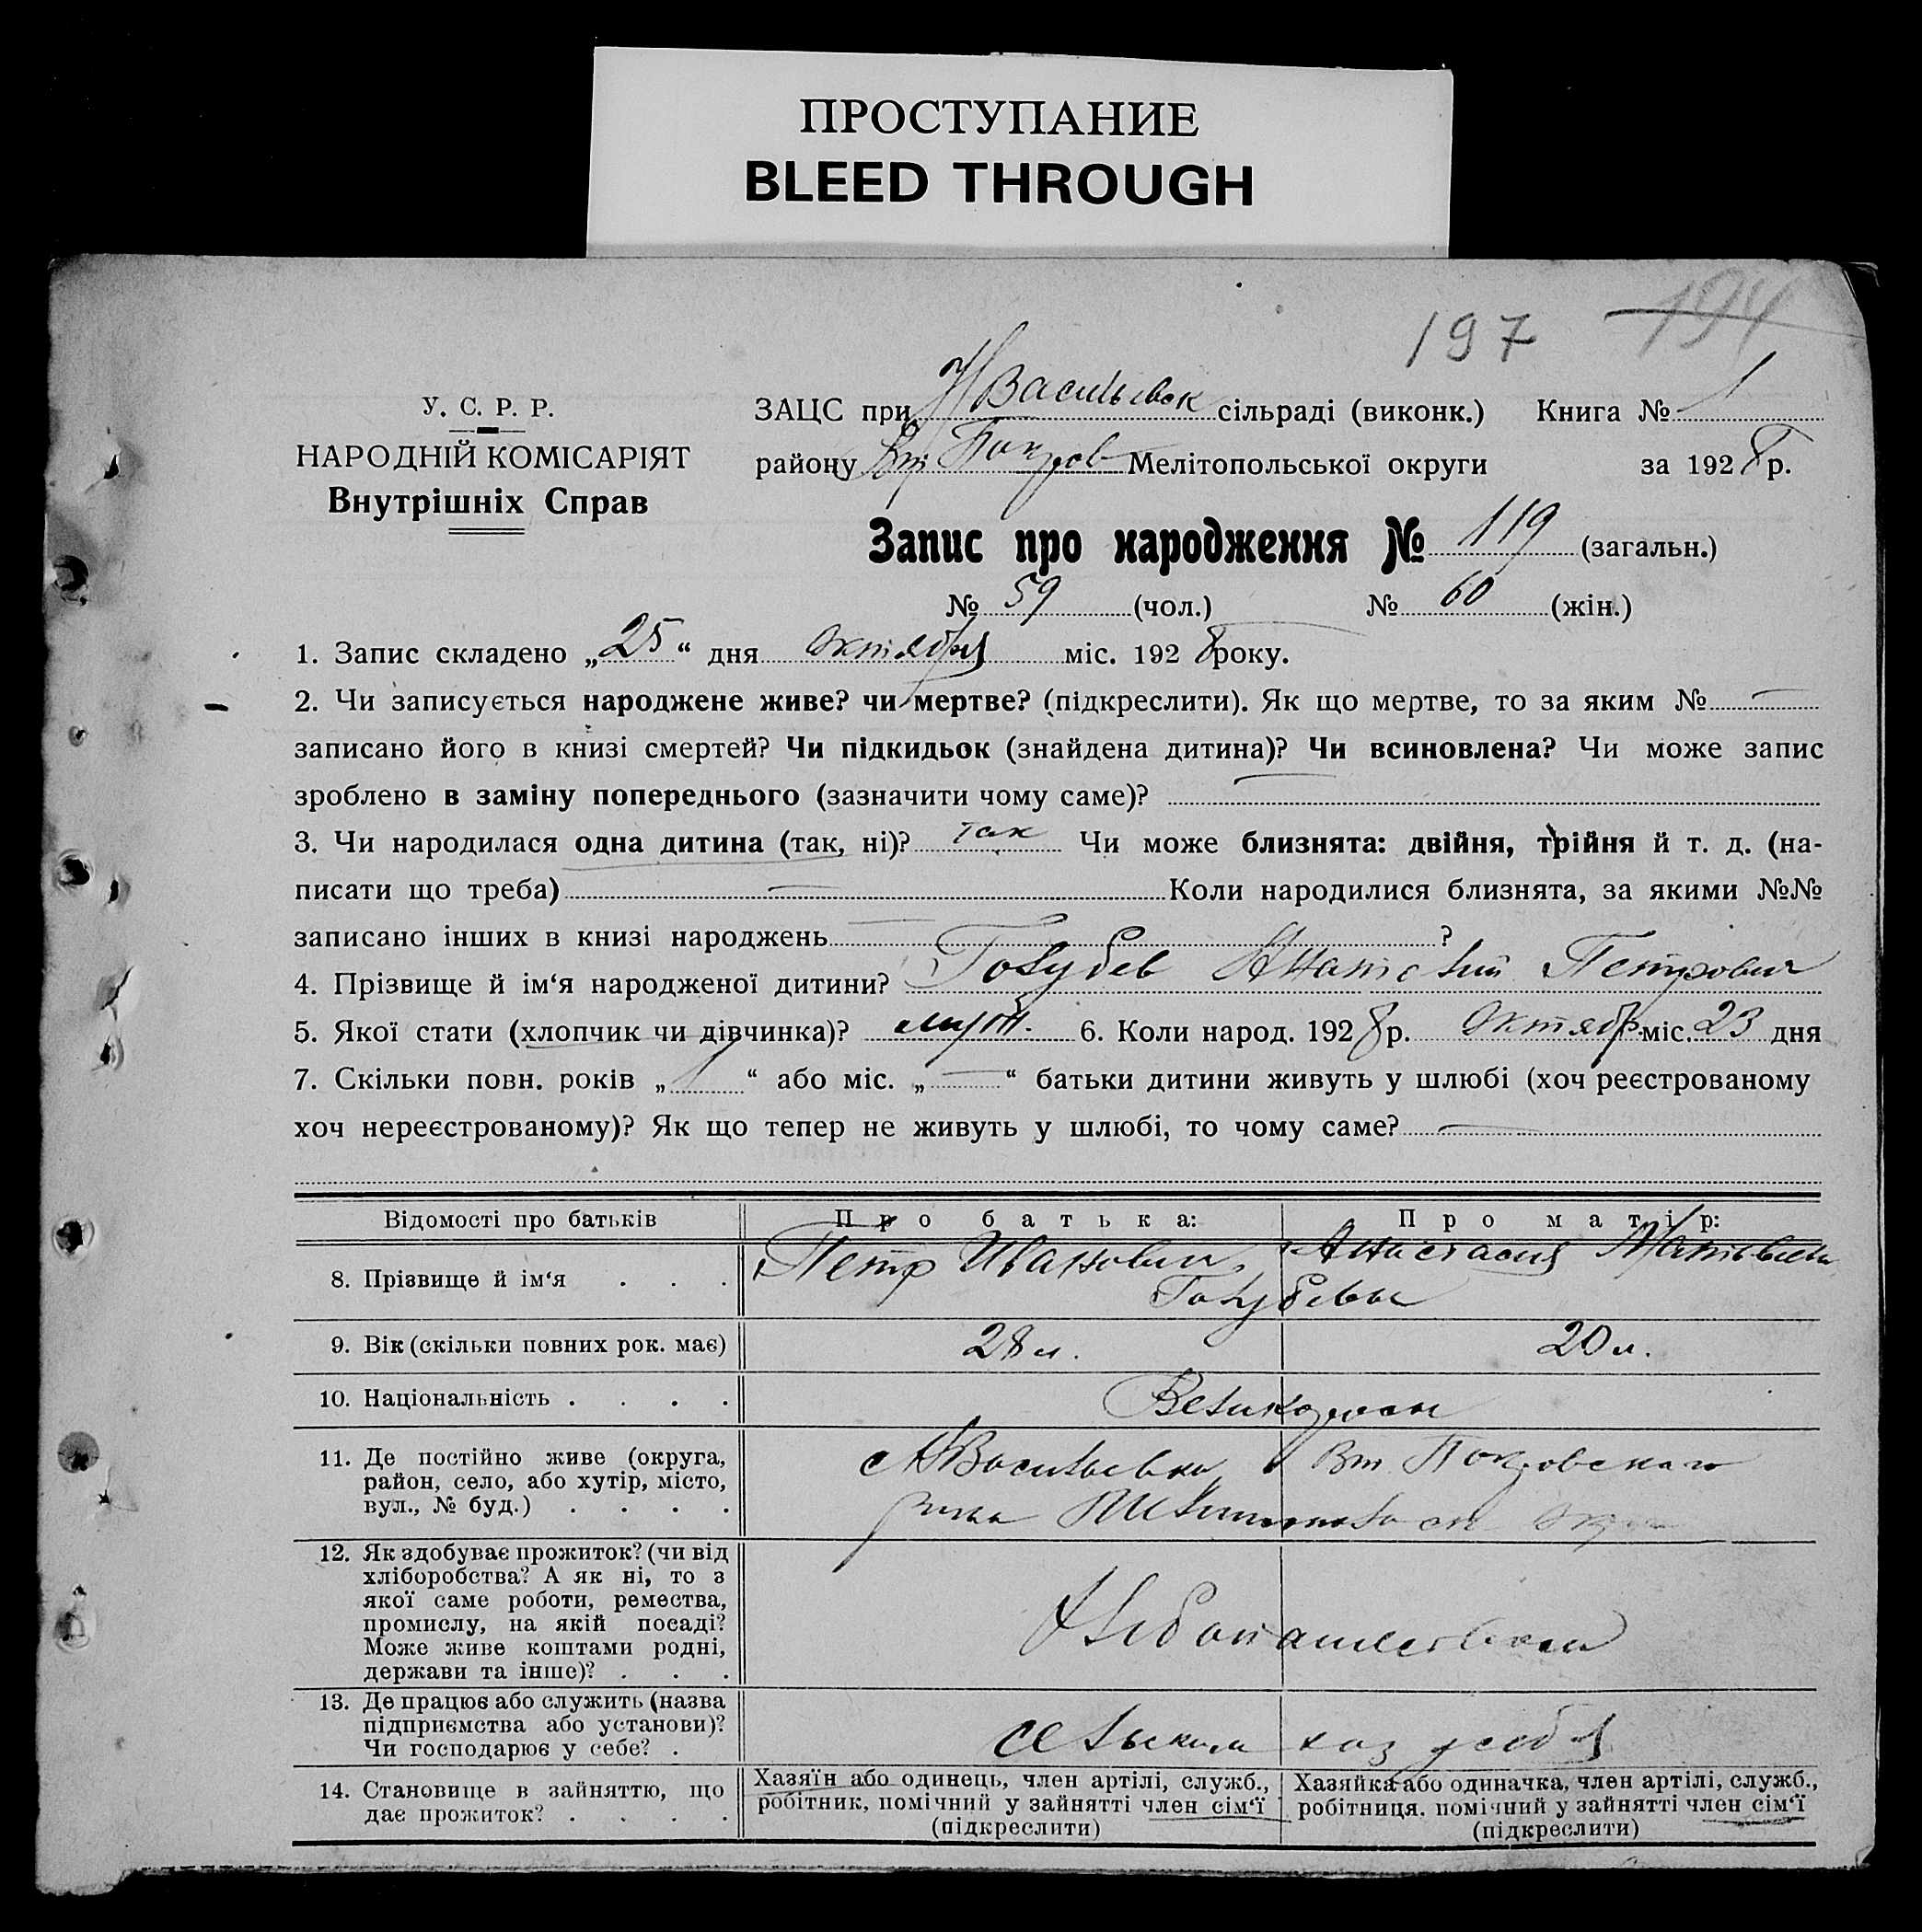 ПРОСТУПАНИЕ
BLEED THROUGH
197 194
У. С. Р. Р.
НАРОДНІЙ КОМІСАРІЯТ
Внутрішніх Справ
ЗАЦС при НВасильевск сільраді (виконк.) Книга № 1
району Вт Покров Мелітопольської округи за 1928 р.
Запис про народження № 119 (загальн.)
№ 59 (чол.) № 60 (жін.)
1. Запис складено „25“ дня октября міс. 1928 року.
2. Чи записується народжене живе? чи мертве? (підкреслити). Як що мертве, то за яким № —
записано його в книзі смертей? Чи підкидьок (знайдена дитина)? Чи всиновлена? Чи може запис
зроблено в заміну попереднього (зазначити чому саме)? —
3. Чи народилася одна дитина (так, ні)? так Чи може близнята: двійня, трійня й т. д. (на-
писати що треба) — Коли народилися близнята, за якими №№
записано інших в книзі народжень — ?
4. Прізвище й ім‘я народженої дитини? Голубев Анатолий Петрович
5. Якої стати (хлопчик чи дівчинка)? 6. Коли народ. 1928 р. Октябр міс. 23 дня
7. Скільки повн. років „1“ або міс. „—“ батьки дитини живуть у шлюбі (хоч реєстрованому
хоч нереєстрованому)? Як що тепер не живуть у шлюбі, то чому саме? —
Відомості про батьків Про батька: Про матір:
8. Прізвище й ім‘я . . . Петр Иванович, Анастасия
Голубевы
9. Вік (скільки повних рок. має) 28 л. 20 л.
10. Національність . . . . Великороссы
11. Де постійно живе (округа,
район, село, або хутір, місто,
вул., № буд.) . . . .
с НВасильевка Вт. Покровского
р-на Мелитопольск окр
12. Як здобуває прожиток? (чи від
хліборобства? А як ні, то з
якої саме роботи, ремества,
промислу, на якій посаді?
Може живе коштами родні,
держави та інше)? . . .
Хлебопашеством
13. Де працює або служить (назва
підприємства або установи)?
Чи господарює у себе? .
сельским хоз у себя
14. Становище в зайняттю, що
дає прожиток? . . . .
Хазяїн або одинець, член артілі, служб.,
робітник, помічний у зайнятті член сім‘ї
(підкреслити)
Хазяйка або одиначка, член артілі, служб.,
робітниця, помічний у зайнятті член сім‘ї
(підкреслити)